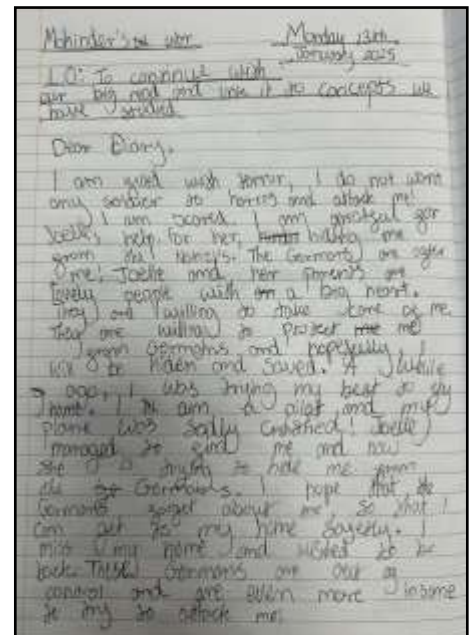 Mohinder's war Monday 13th
January 2025
L.O: To continue with
our big read and link it to concepts we
have studied
Dear Diary,
I am with terror, I do not want
any soldier to and attack me!
I am scared. I am greatful for
Joelle's help for her, hiding me
from the The Germans are after
me! Joelle and her parents are
lovely people with a big heart.
They are willing to take care of me.
they are willing to protect me
from Germans and hopefully, I
will be hiden and saved. A while
ago, I was trying my best to fly
home. I am a pilot and my
plane was sadly crashed! Joelle
managed to find me and now
she is trying to hide me from
the Germans. I hope that the
Germans forget about me, so that I
can get to my home safely. I
miss my home and wished to be
back. These Germans are out of
control and are even more insane
to try to attack me!